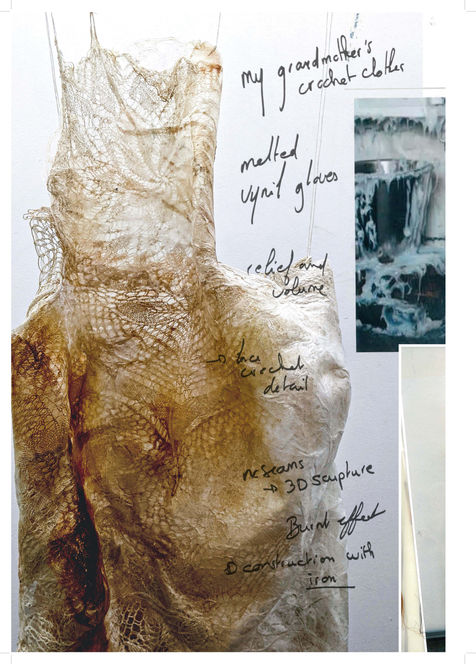 my grandmother's
crochet clothes
melted
vynil gloves
relief and
volume
→ lace
crochet
detail
no seams
→ 3D sculpture
Burnt effect
construction with
iron